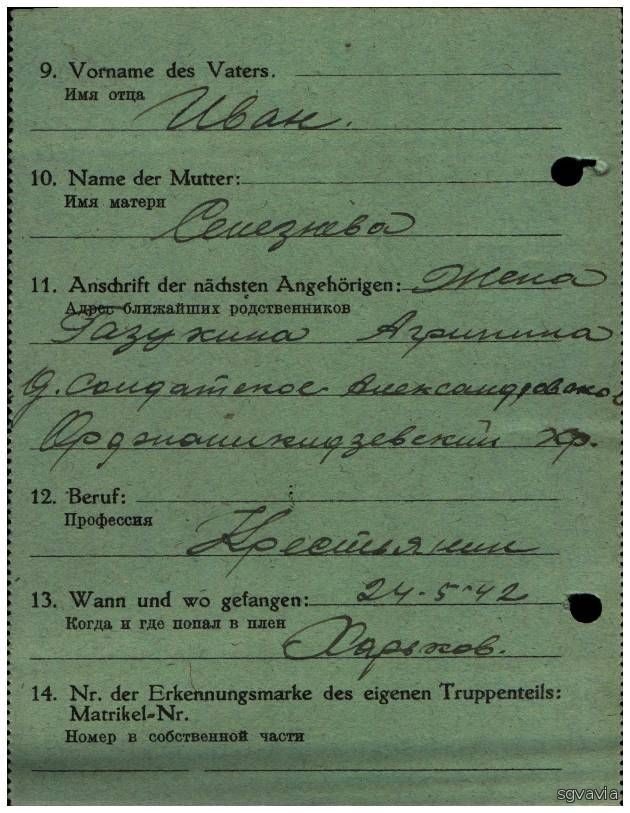 9. Vorname des Vaters.
Имя отца
Иван.
10. Name der Mutter:
Имя матери
Селезнева
11. Anschrift der nächsten Angehörigen: Жена
Адрес ближайших родственников
Газукина Агрипина
д. Солдатское Александровско
Орджоникидзевский кр.
12. Beruf:
Профессия
Крестьянин
13. Wann und wo gefangen: 24-5-42
Когда и где попал в плен
Харьков.
14. Nr. der Erkennungsmarke des eigenen Truppenteils:
Matrikel-Nr.
Номер в собственной части
sgvavia